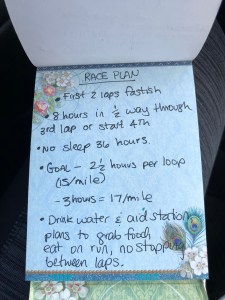 RACE PLAN
• First 2 laps fastish
• 8 hours in ½ way through
3rd lap or start 4th
• No sleep 36 hours.
• GOAL – 2½ hours per loop
(15/mile)
– 3 hours = 17/mile
• Drink water & aid station
plans to grab food,
eat on run, no stopping
between laps.